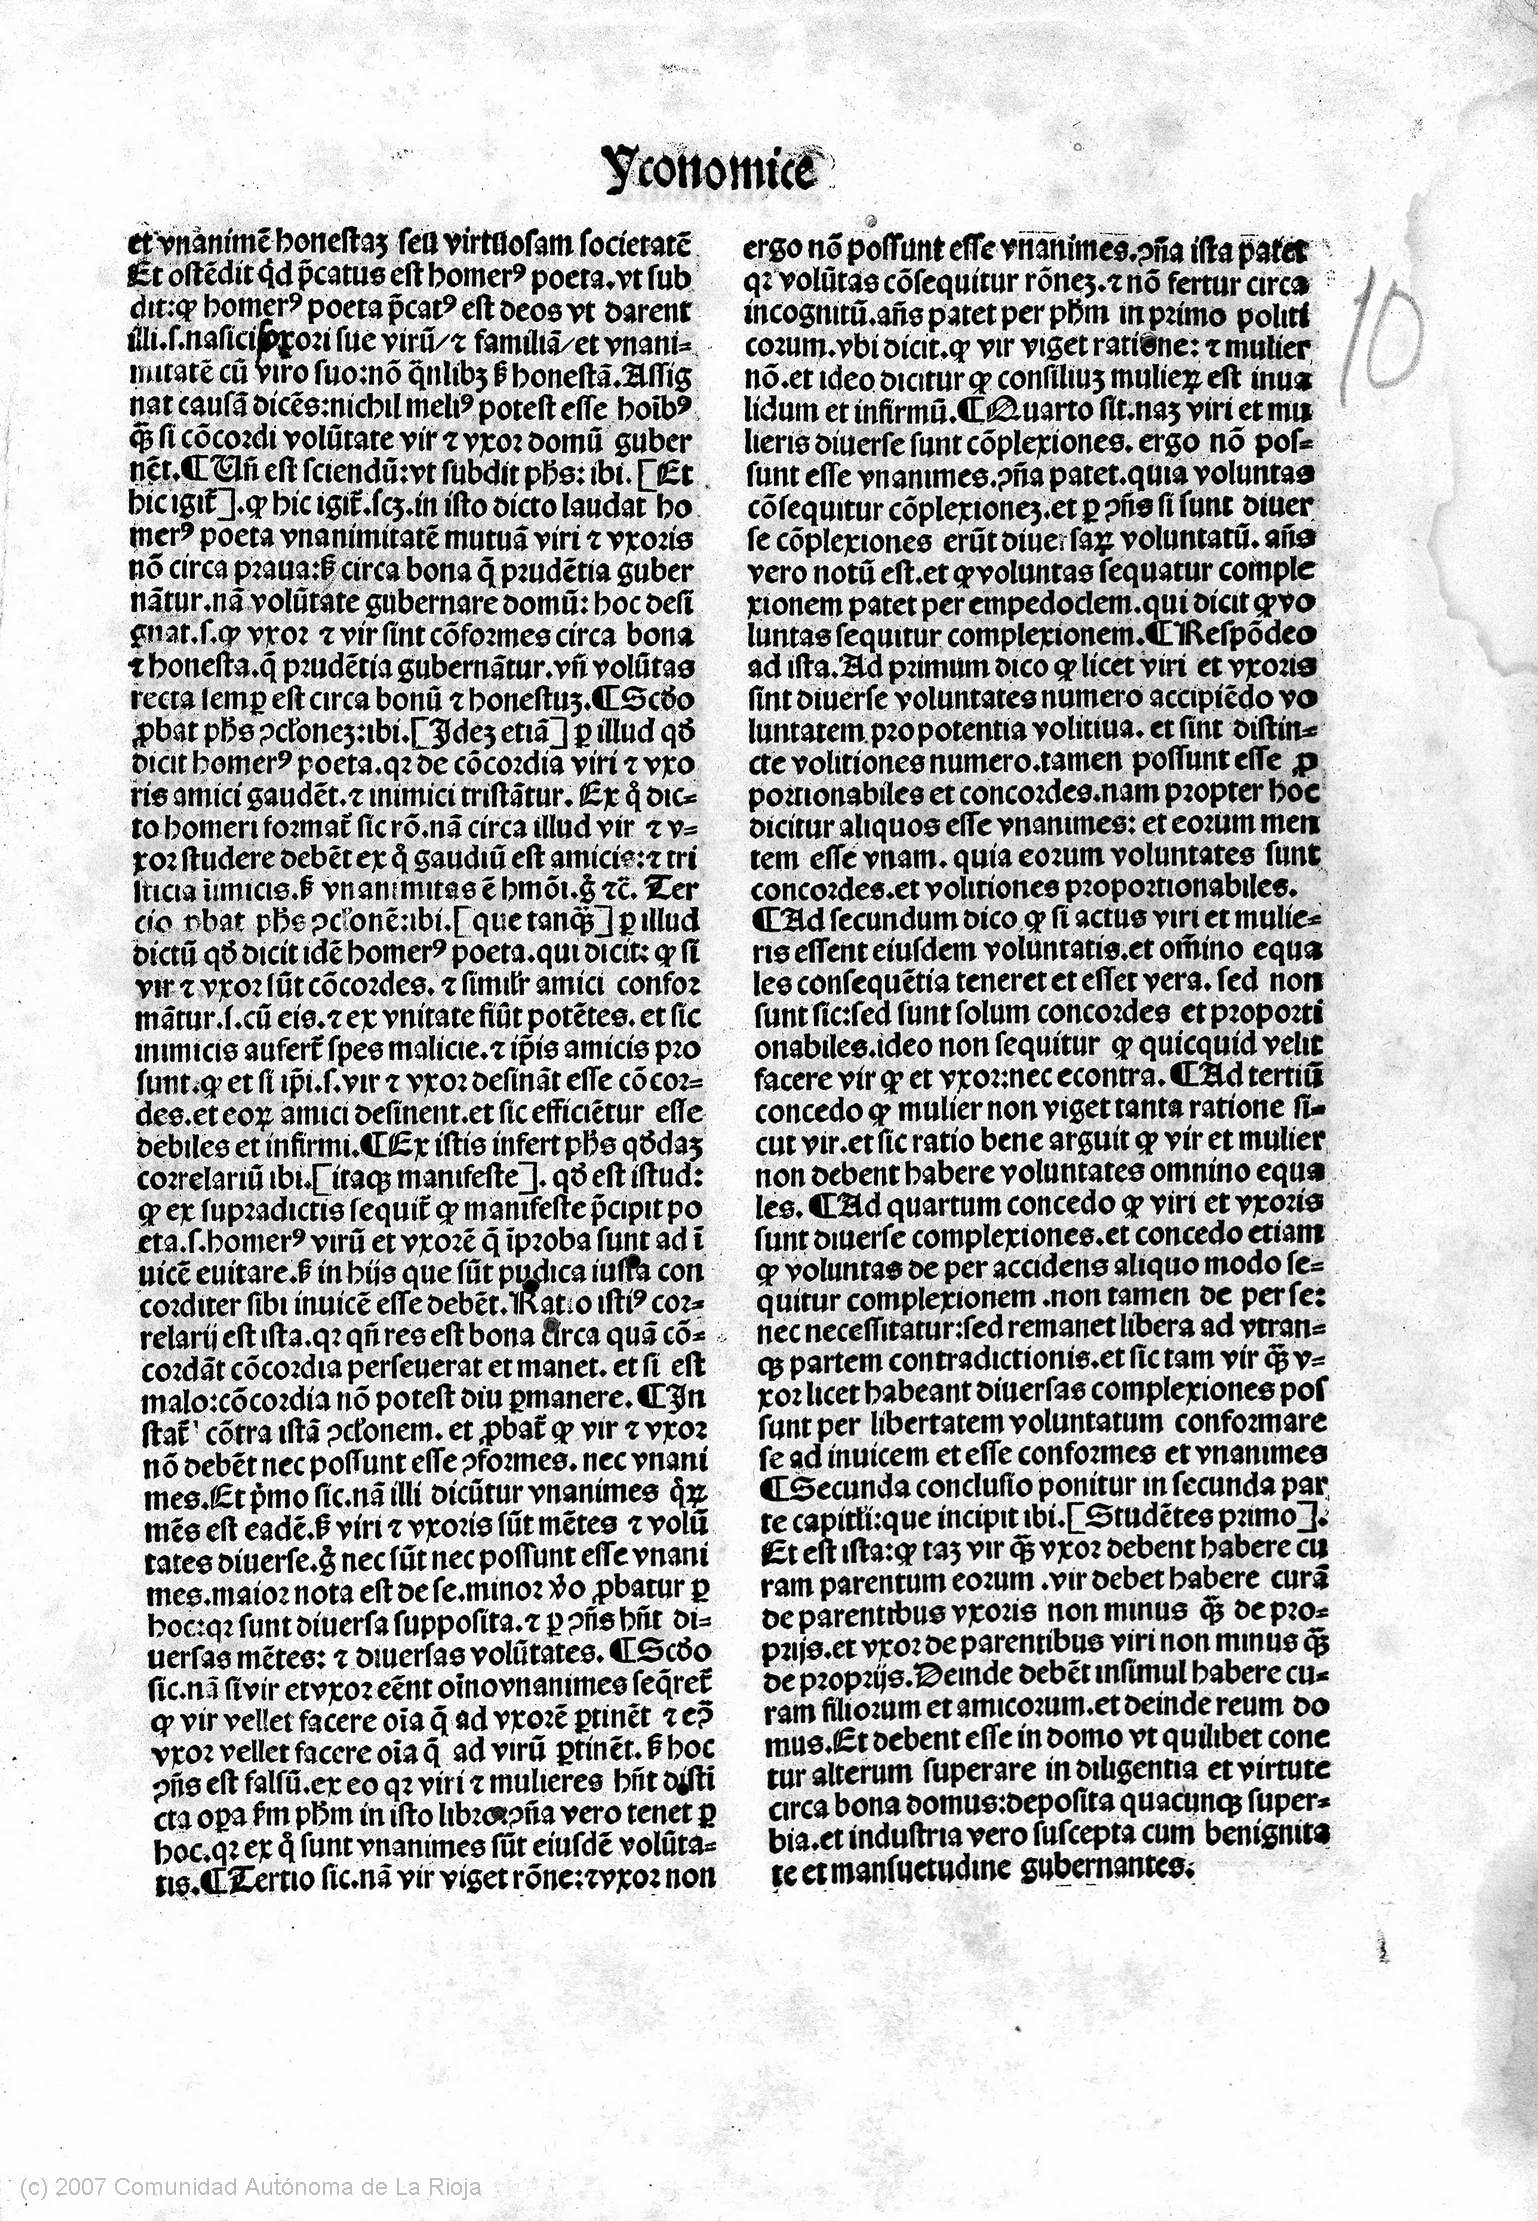 Yconomice
et vnanimẽ honestaʒ seu virtuosam societatẽ
Et ostẽdit qd p̃catus est homerꝰ poeta.vt sub
dit:ꝙ homerꝰ poeta p̃catꝰ est deos vt darent
illi.s.nasici vxori sue virũ/⁊ familiã/et vnani-
mitatẽ cũ viro suo:nõ q̃nlibʒ sʒ honestã.Assig
nat causã dicẽs:nichil meliꝰ potest esse hoĩbꝰ
q̃ʒ si cõcordi volũtate vir ⁊ vxor domũ guber
nẽt.¶Uñ est sciendũ:vt subdit ph̃s:ibi.[Et
hic igit̃].ꝙ hic igit̃.scʒ.in isto dicto laudat ho
merꝰ poeta vnanimitatẽ mutuã viri ⁊ vxoris
nõ circa praua:sʒ circa bona q̃ prudẽtia guber
nãtur.nã volũtate gubernare domũ:hoc desi
gnat.s.ꝙ vxor ⁊ vir sint cõformes circa bona
⁊ honesta.q̃ prudẽtia gubernãtur.vñ volũtas
recta semꝑ est circa bonũ ⁊ honestuʒ.¶Scd̃o
ꝓbat ph̃s ꝯcl̃oneʒ:ibi.[Ideʒ etiã]ꝑ illud qd̃
dicit homerꝰ poeta.qꝛ de cõcordia viri ⁊ vxo
ris amici gaudẽt.⁊ inimici tristãtur. Ex q̊ dic-
to homeri format̃ sic rõ.nã circa illud vir ⁊ v-
xor studere debẽt ex q̊ gaudiũ est amicis:⁊ tri
sticia iĩmicis.sʒ vnanimitas ẽ hmõi.g̊ ⁊c̃. Ter
cio ꝓbat ph̃s ꝯcl̃onẽ:ibi.[que tanq̃ʒ]ꝑ illud
dictũ qd̃ dicit idẽ homerꝰ poeta.qui dicit: ꝙ si
vir ⁊ vxor sũt cõcordes. ⁊ simil̃r amici confor
mãtur.s.cũ eis.⁊ ex vnitate fiũt potẽtes. et sic
inimicis aufert̃ spes malicie.⁊ ip̃is amicis pro
sunt.ꝙ et si ip̃i.s.vir ⁊ vxor desinãt esse cõcor-
des.et eoꝝ amici desinent.et sic efficiẽtur esse
debiles et infirmi.¶Ex istis infert ph̃s qd̃daʒ
correlariũ ibi.[itaqʒ manifeste]. qd̃ est istud:
ꝙ ex supradictis sequit̃ ꝙ manifeste p̃cipit po
eta.s.homerꝰ virũ et vxorẽ q̃ ĩproba sunt ad ĩ
uicẽ euitare.sʒ in hijs que sũt pudica iusta con
corditer sibi inuicẽ esse debẽt.Ratio istiꝰ cor-
relarij est ista.qꝛ qñ res est bona circa quã cõ-
cordãt cõcordia perseuerat et manet. et si est
malo:cõcordia nõ potest diu ꝑmanere.¶In
stat̃ cõtra istã ꝯcl̃onem. et ꝓbat̃ ꝙ vir ⁊ vxor
nõ debẽt nec possunt esse ꝯformes. nec vnani
mes.Et p̃mo sic.nã illi dicũtur vnanimes q̊ꝝ
mẽs est eadẽ.sʒ viri ⁊ vxoris sũt mẽtes ⁊ volũ
tates diuerse.g̊ nec sũt nec possunt esse vnani
mes.maior nota est de se.minor v̊o ꝓbatur ꝑ
hoc:qꝛ sunt diuersa supposita.⁊ ꝑ ꝯñs hñt di-
uersas mẽtes: ⁊ diuersas volũtates.¶Scd̃o
sic.nã si vir et vxor eẽnt oĩno vnanimes seq̃ret̃
ꝙ vir vellet facere oĩa q̃ ad vxorẽ ꝑtinẽt ⁊ eꝯ̃
vxor vellet facere oĩa q̃ ad virũ ꝑtinẽt. sʒ hoc
ꝯñs est falsũ.ex eo qꝛ viri ⁊ mulieres hñt disti
cta oꝑa sʒm ph̃m in isto libro.ꝯña vero tenet ꝑ
hoc.qꝛ ex q̊ sunt vnanimes sũt eiusdẽ volũta-
tis.¶Tertio sic.nã vir viget rõne:⁊ vxor non
ergo nõ possunt esse vnanimes.ꝯña ista patet
qꝛ volũtas cõsequitur rõneʒ.⁊ nõ fertur circa
incognitũ.añs patet per ph̃m in primo politi
corum.vbi dicit.ꝙ vir viget ratione: ⁊ mulier
nõ.et ideo dicitur ꝙ consiliuʒ mulieꝝ est inua
lidum et infirmũ.¶Quarto sit.naʒ viri et mu
lieris diuerse sunt cõplexiones. ergo nõ pos-
sunt esse vnanimes.ꝯña patet.quia voluntas
cõsequitur cõplexioneʒ.et ꝑ ꝯñs si sunt diuer
se cõplexiones erũt diuersaꝝ voluntatũ. añs
vero notũ est.et ꝙ voluntas sequatur comple
xionem patet per empedoclem.qui dicit ꝙ vo
luntas sequitur complexionem.¶Respõdeo
ad ista.Ad primum dico ꝙ licet viri et vxoris
sint diuerse voluntates numero accipiẽdo vo
luntatem pro potentia volitiua. et sint distin-
cte volitiones numero.tamen possunt esse ꝓ
portionabiles et concordes.nam propter hoc
dicitur aliquos esse vnanimes: et eorum men
tem esse vnam. quia eorum voluntates sunt
concordes.et volitiones proportionabiles.
¶Ad secundum dico ꝙ si actus viri et mulie-
ris essent eiusdem voluntatis.et om̃ino equa
les consequẽtia teneret et esset vera. sed non
sunt sic:sed sunt solum concordes et proporti
onabiles.ideo non sequitur ꝙ quicquid velit
facere vir ꝙ et vxor:nec econtra.¶Ad tertiũ
concedo ꝙ mulier non viget tanta ratione si-
cut vir.et sic ratio bene arguit ꝙ vir et mulier
non debent habere voluntates omnino equa
les. ¶Ad quartum concedo ꝙ viri et vxoris
sunt diuerse complexiones.et concedo etiam
ꝙ voluntas de per accidens aliquo modo se-
quitur complexionem .non tamen de per se:
nec necessitatur:sed remanet libera ad vtran-
qʒ partem contradictionis.et sic tam vir q̃ʒ v-
xor licet habeant diuersas complexiones pos
sunt per libertatem voluntatum conformare
se ad inuicem et esse conformes et vnanimes
¶Secunda conclusio ponitur in secunda par
te capitl̃i:que incipit ibi.[Studẽtes primo].
Et est ista:ꝙ taʒ vir q̃ʒ vxor debent habere cu
ram parentum eorum .vir debet habere curã
de parentibus vxoris non minus q̃ʒ de pro-
prijs.et vxor de parentibus viri non minus q̃ʒ
de proprijs.Deinde debẽt insimul habere cu-
ram filiorum et amicorum.et deinde reum do
mus.Et debent esse in domo vt quilibet cone
tur alterum superare in diligentia et virtute
circa bona domus:deposita quacunqʒ super-
bia.et industria vero suscepta cum benignita
te et mansuetudine gubernantes.
10
(c) 2007 Comunidad Autónoma de La Rioja